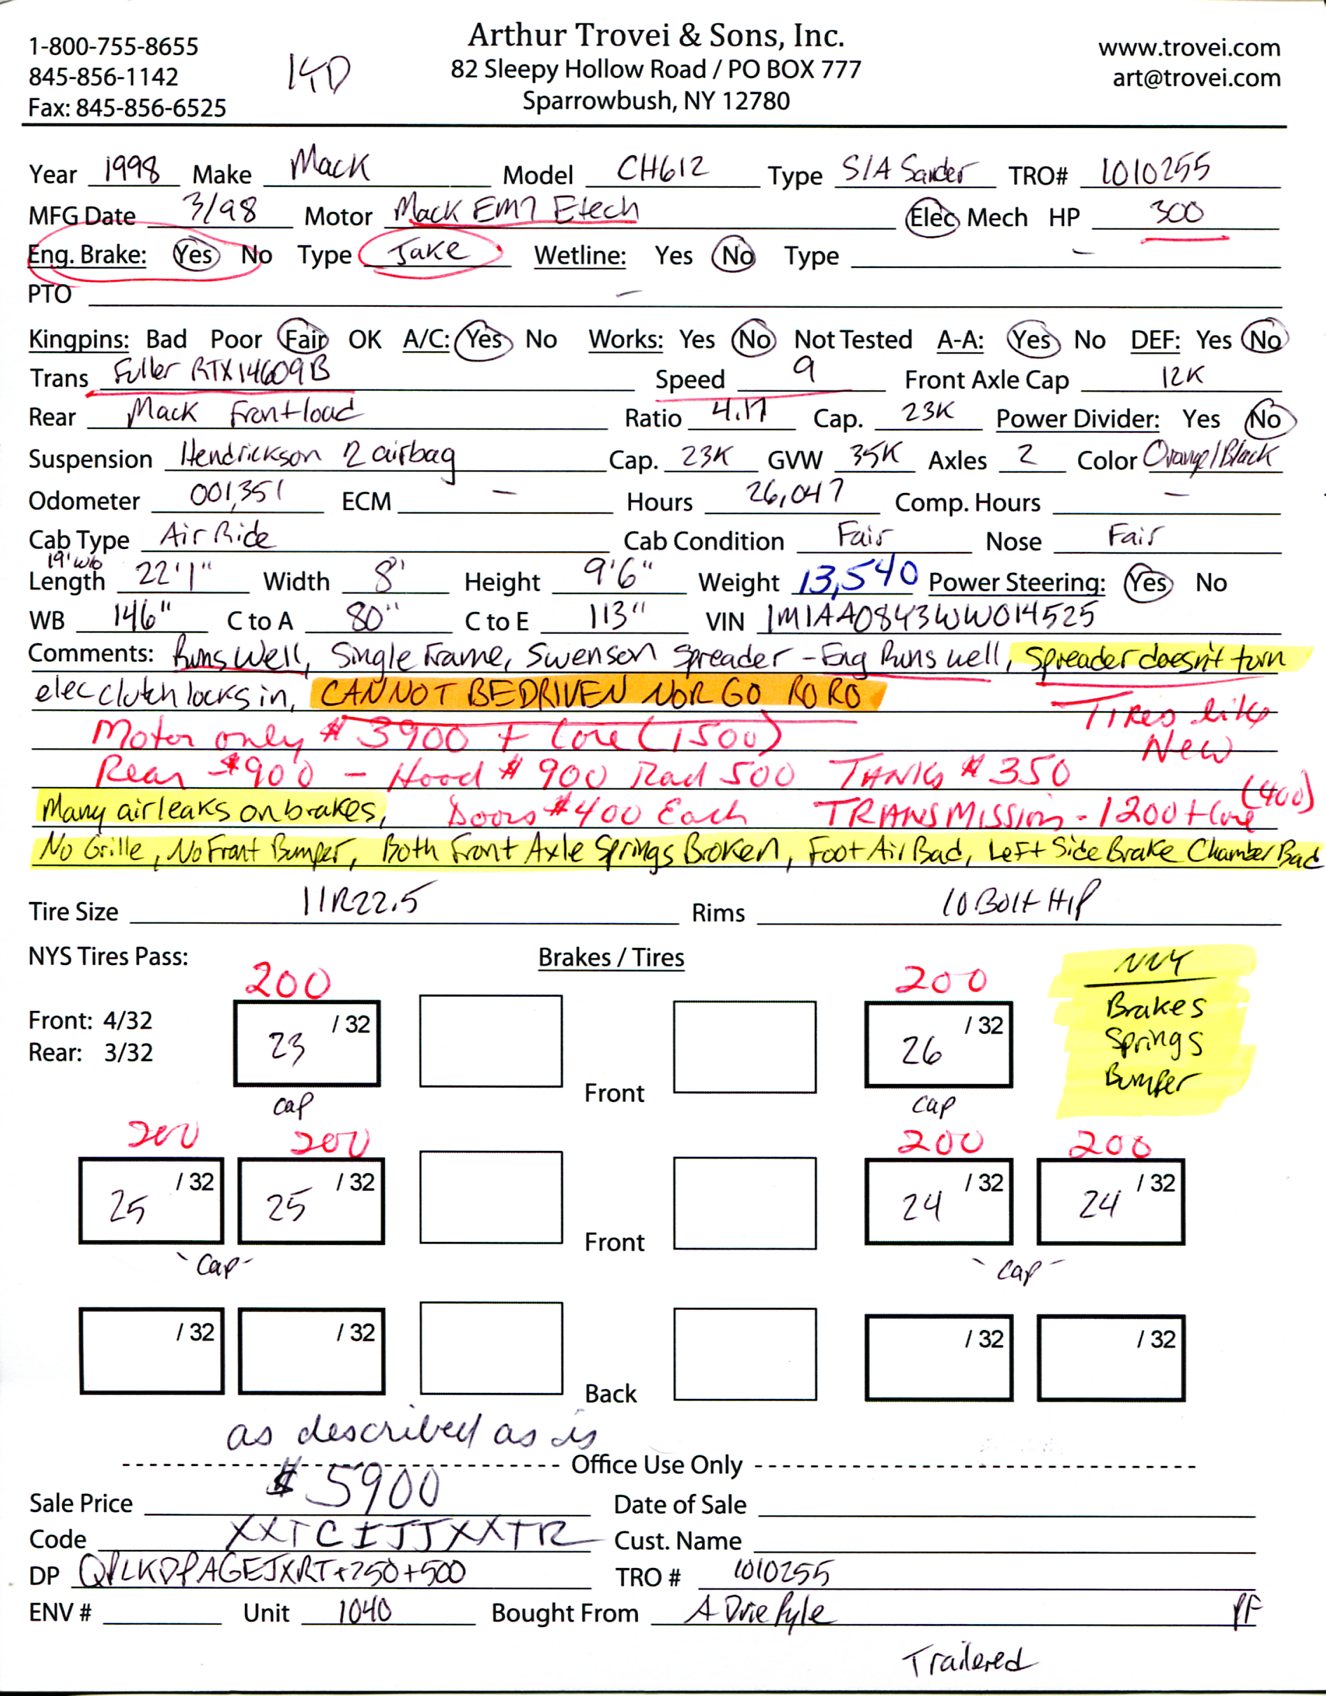 Arthur Trovei & Sons, Inc.
1-800-755-8655 www.trovei.com
845-856-1142 82 Sleepy Hollow Road / PO BOX 777 art@trovei.com
Fax: 845-856-6525 Sparrowbush, NY 12780
Year 1998 Make Mack Model CH612 Type S/A Sander TRO# 1010255
MFG Date 3/98 Motor Mack EM7 Etech Elec Mech HP 300
Eng. Brake: Yes No Type Jake Wetline: Yes No Type -
PTO -
Kingpins: Bad Poor Fair OK A/C: Yes No Works: Yes No Not Tested A-A: Yes No DEF: Yes No
Trans Fuller RTX14609B Speed 9 Front Axle Cap 12K
Rear Mack Frontload Ratio 4.17 Cap. 23K Power Divider: Yes No
Suspension Hendrickson 2 airbag Cap. 23K GVW 35K Axles 2 Color Orange/Black
Odometer 001,351 ECM - Hours 26,047 Comp. Hours -
Cab Type Air Ride Cab Condition Fair Nose Fair
19' w/o
Length 22'1" Width 8' Height 9'6" Weight 13,540 Power Steering: Yes No
WB 146" C to A 80" C to E 113" VIN 1M1AA0843WW014525
Comments: Runs Well, Single Frame, Swenson Spreader - Eng Runs well, Spreader doesn't turn
elec clutch locks in, CANNOT BE DRIVEN NOR GO RO RO
Tires like
Motor only $3900 + Core (1500) New
Rear $900 - Hood $900 Rad 500 TANKS $350
Many air leaks on brakes, Doors $400 Each TRANSMISSION - 1200 + Core (400)
No Grille, No Front Bumper, Both Front Axle Springs Broken, Foot Air Bad, Left Side Brake Chamber Bad
Tire Size 11R22.5 Rims 10 Bolt Hip
NYS Tires Pass: Brakes / Tires NNY
200 200
Brakes
Front: 4/32 23 /32 26 /32 Springs
Rear: 3/32 Front Bumper
cap cap
200 200 200 200
25 /32 25 /32 24 /32 24 /32
Front
- Cap - - Cap -
/32 /32 /32 /32
Back
as described as is
Office Use Only
Sale Price $5900 Date of Sale
Code XXTCIJJXXTR Cust. Name
DP QPLKDPAGEJXRT+250+500 TRO # 1010255
ENV # Unit 1040 Bought From A Drie Pyle PF
Trailered